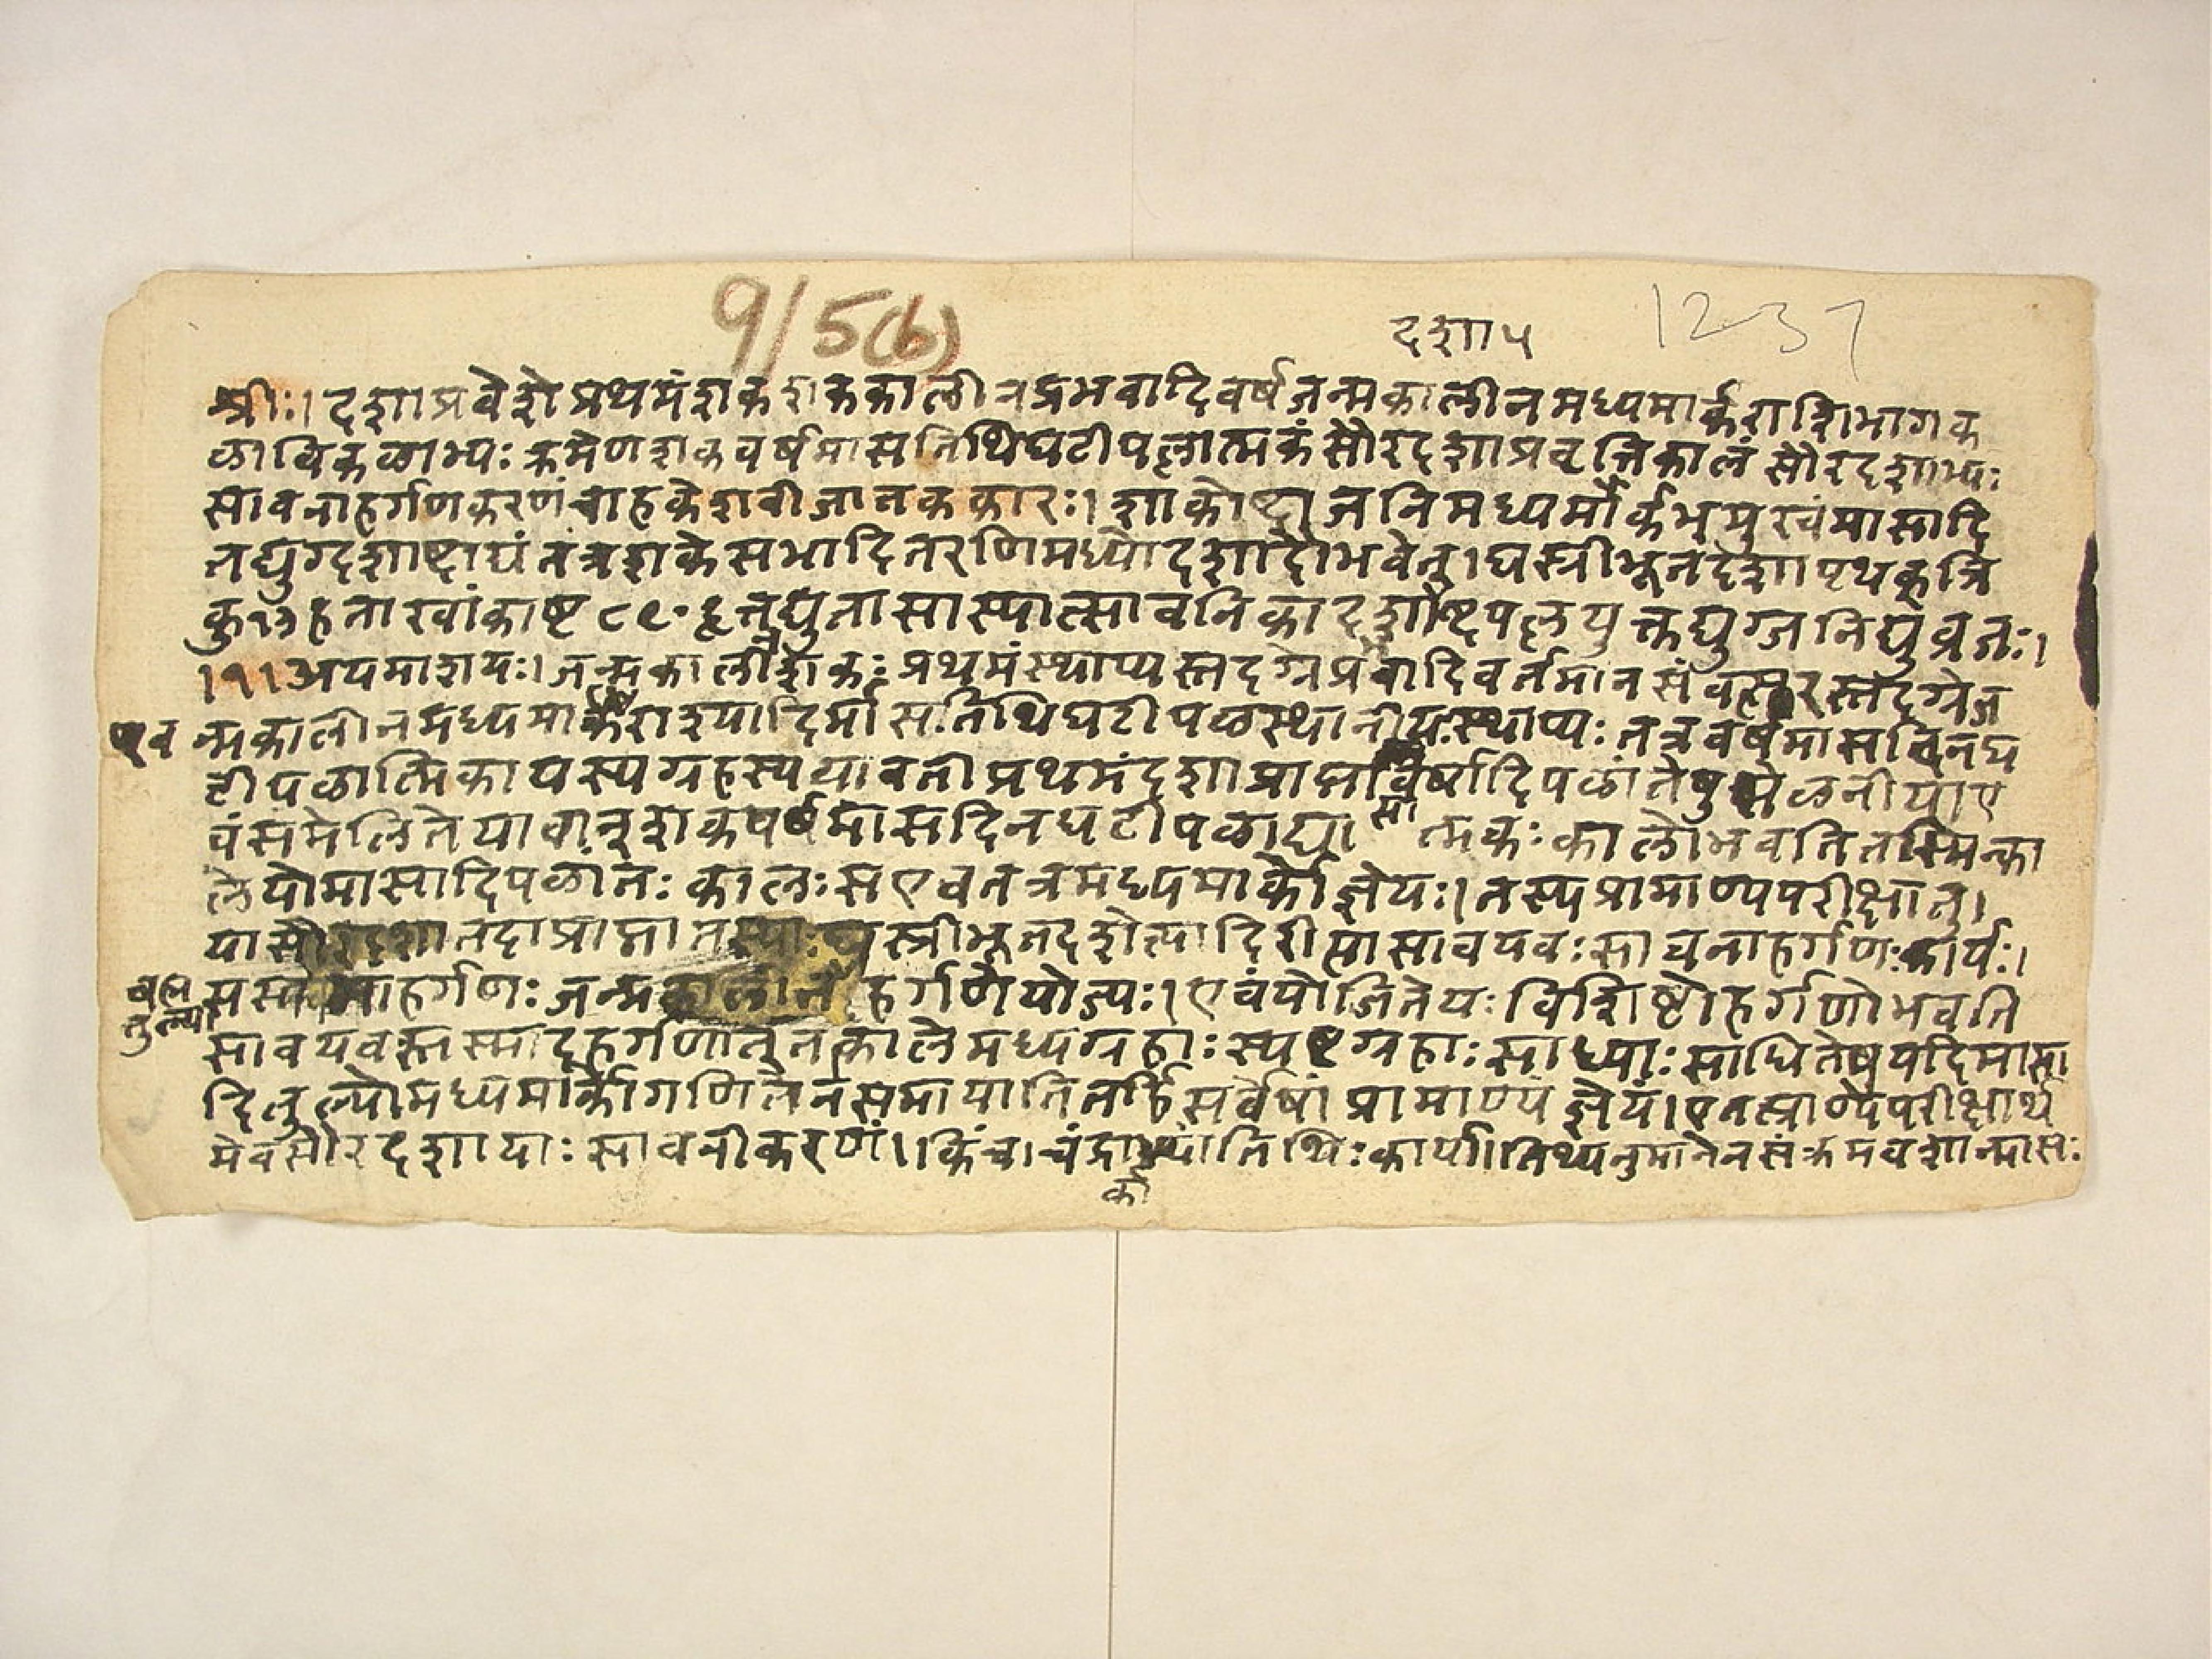 9/5(b)
दशा५
1237
श्रीः। दशाप्रवेशे प्रथमंशकशककालीनप्रभवादिवर्षजन्मकालीनमध्यमार्कराशिभागक
ळाविकळाभ्यः क्रमेणशकवर्षमासतिथिघटीपलात्मकंसौरदशाप्रवृत्तिकालं सौरदशाभ्यः
सावनाहर्गणकरणंचाहकेशवीजातककारः। शाकोष्टा जनिमध्यमार्कभमुखंमासादि
तद्युग्दशाष्टाद्यं तत्रशकेसभादितरणिमध्योदशादौभवेत्। घस्त्रीभूतदशापृथक्त्रि
कु१३हताखांकाष्ट८९॰हृत्तद्युतासास्यात्सावनिकादशाष्टपलयुक्तद्युग्जनिद्युव्रजः।
।१।अयमाशयः। जन्मकालीनशकः प्रथमंस्थाप्यस्तदग्रेप्रभवादिवर्तमानसंवत्सरस्तदग्रेज
न्मकालीनमध्यमार्कराश्यादिर्मासतिथिघटीपळस्थानीयःस्थाप्यः तत्रवर्षमासदिनघ
टीपळात्मिकायस्यग्रहस्ययावतीप्रथमंदशाप्राप्ता वर्षादिपळांतेषुमेळनीया ए
वंसंमेलितेयावान्शकवर्षमासदिनघटीपळाद्यात्मकः कालोभवतितस्मिन्का
लेयोमासादिपळांतः कालः सएवतत्रमध्यमार्कोज्ञेयः। तस्यप्रामाण्यपरीक्षातु।
यासौरदशातदाप्राप्तातस्याः घस्त्रीभूतदशेत्यादिरीत्यासावयवः सावनाहर्गणः कार्यः।
स सावनाहर्गणः जन्मकालीनाहर्गणेयोज्यः। एवंयोजितेयः विशिष्टोहर्गणोभवति
सावयवस्तस्मादहर्गणात्तत्कालेमध्यग्रहाः स्पष्टग्रहाः साध्याः साधितेषुयदिमासा
दितुल्योमध्यमार्कोगणितेनसमायातितर्हिसर्वेषां प्रामाण्यं ज्ञेयं। एतत्प्रामाण्यपरीक्षार्थ
मेवसौरदशायाः सावनीकरणं। किंच। चंद्रार्काभ्यांतिथिः कार्या। तिथ्यनुमानेनसंक्रमवशान्मासः